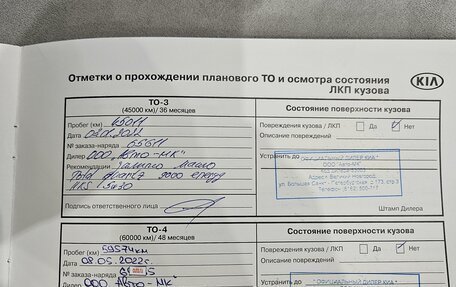 Отметки о прохождении планового ТО и осмотра состояния
ЛКП кузова
KIA
ТО-3
(45000 км)/ 36 месяцев
Состояние поверхности кузова
Пробег (км)
Дата
№ заказа-наряда
Дилер ООО „Авто-МК"
Рекомендации
Total Quartz 9000 energy
5w30
Подпись ответственного лица
Повреждения кузова / ЛКП Да Нет
Описание повреждений
Устранить до
ОФИЦИАЛЬНЫЙ ДИЛЕР КИА
ООО "Авто-МК"
Код дилера
Адрес: Великий Новгород,
ул. Большая Санкт - Петербургская, д.173, стр.3
Телефон:
Штамп Дилера
ТО-4
(60000 км)/ 48 месяцев
Состояние поверхности кузова
Пробег (км) 59574км
Дата 08.05.2022г.
№ заказа-наряда
Дилер ООО „Авто-МК"
Повреждения кузова / ЛКП Да Нет
Описание повреждений
Устранить до
"ОФИЦИАЛЬНЫЙ ДИЛЕР КИА"